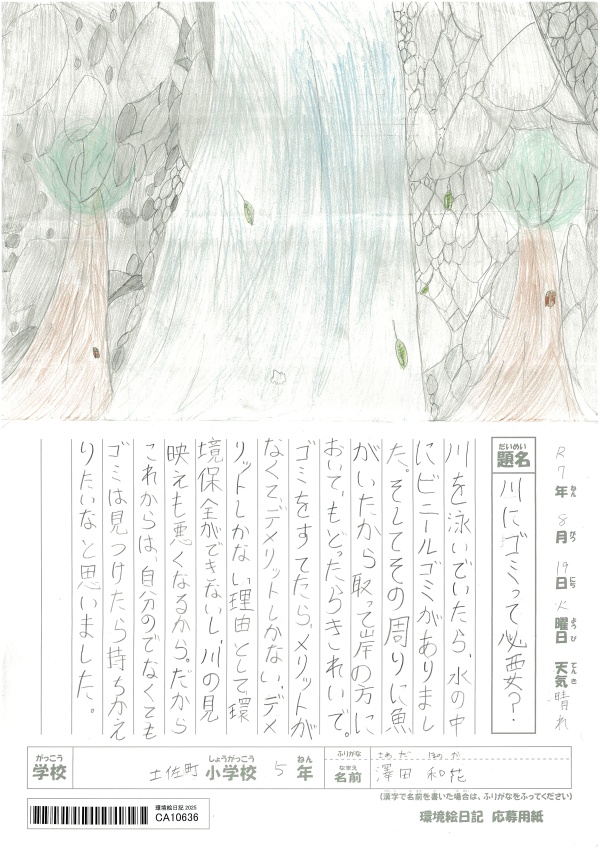 R7年 8月 19日 火曜日 天気 晴れ
ねん がつ にち ようび てんき
だいめい
題名 川にゴミって必要?
川を泳いでいたら、水の中
にビニールゴミがありまし
た。そしてその周りに魚
がいたから取って岸の方に
おいて、もどったらきれいで。
ゴミをすてたら、メリットが
なくて、デメリットしかない、デメ
リットしかない理由として環
境保全ができないし、川の見
映えも悪くなるから。だから
これからは、自分のでなくても
ゴミは見つけたら持ちかえ
りたいなと思いました。
がっこう しょうがっこう ねん
学校 土佐町 小学校 5年
ふりがな さわだ ほのか
なまえ
名前 澤田 和花
(漢字で名前を書いた場合は、ふりがなをふってください)
環境絵日記 2025
CA10636
環境絵日記 応募用紙